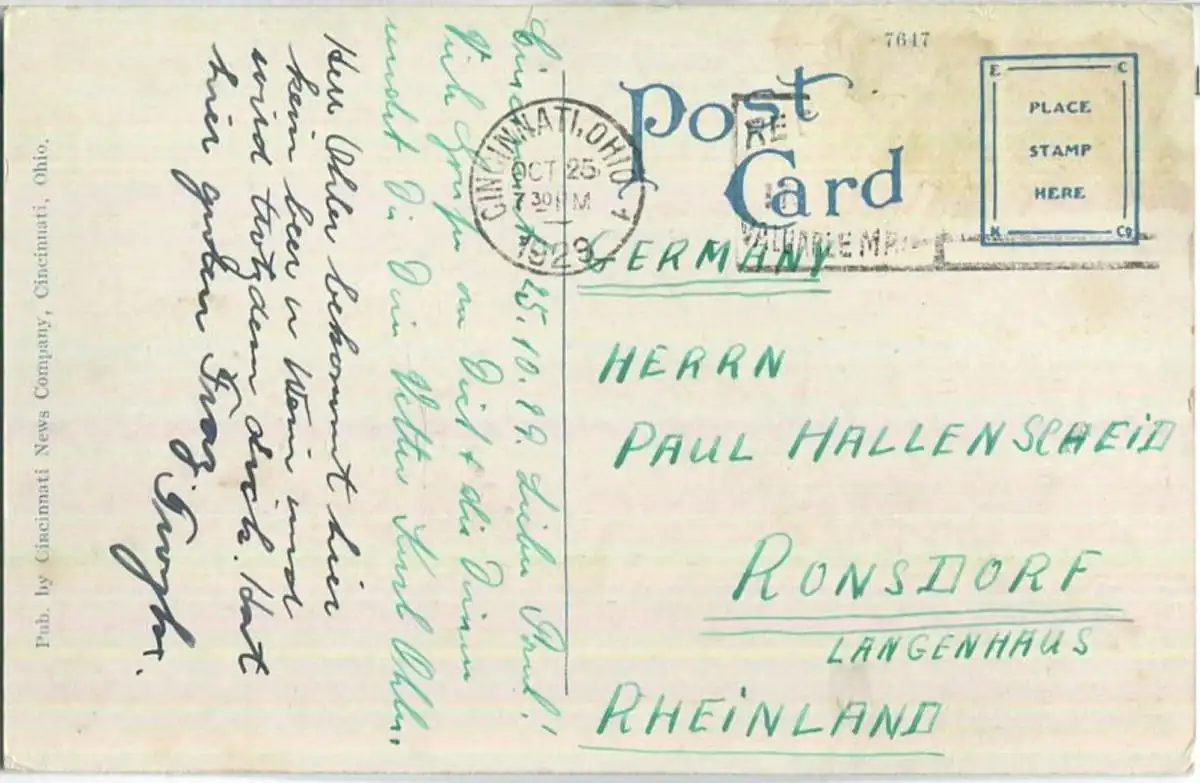 7647
Post
Card
E C
PLACE
STAMP
HERE
K Co
CINCINNATI, OHIO 1
OCT 25
7 30 PM
1929
VALUABLE MAIL
GERMANY
HERRN
PAUL HALLENSCHEID
RONSDORF
LANGENHAUS
RHEINLAND
Cincinnati 25.10.29. Lieber Paul!
Viele Grüße an Dich + die Deinen
sendet Dir Dein Vetter Karl Ohler.
Herr Ohler bekommt hier
kein beer u Wein und
wird trotzdem dick. Hat
hier guten
Pub. by Cincinnati News Company, Cincinnati, Ohio.